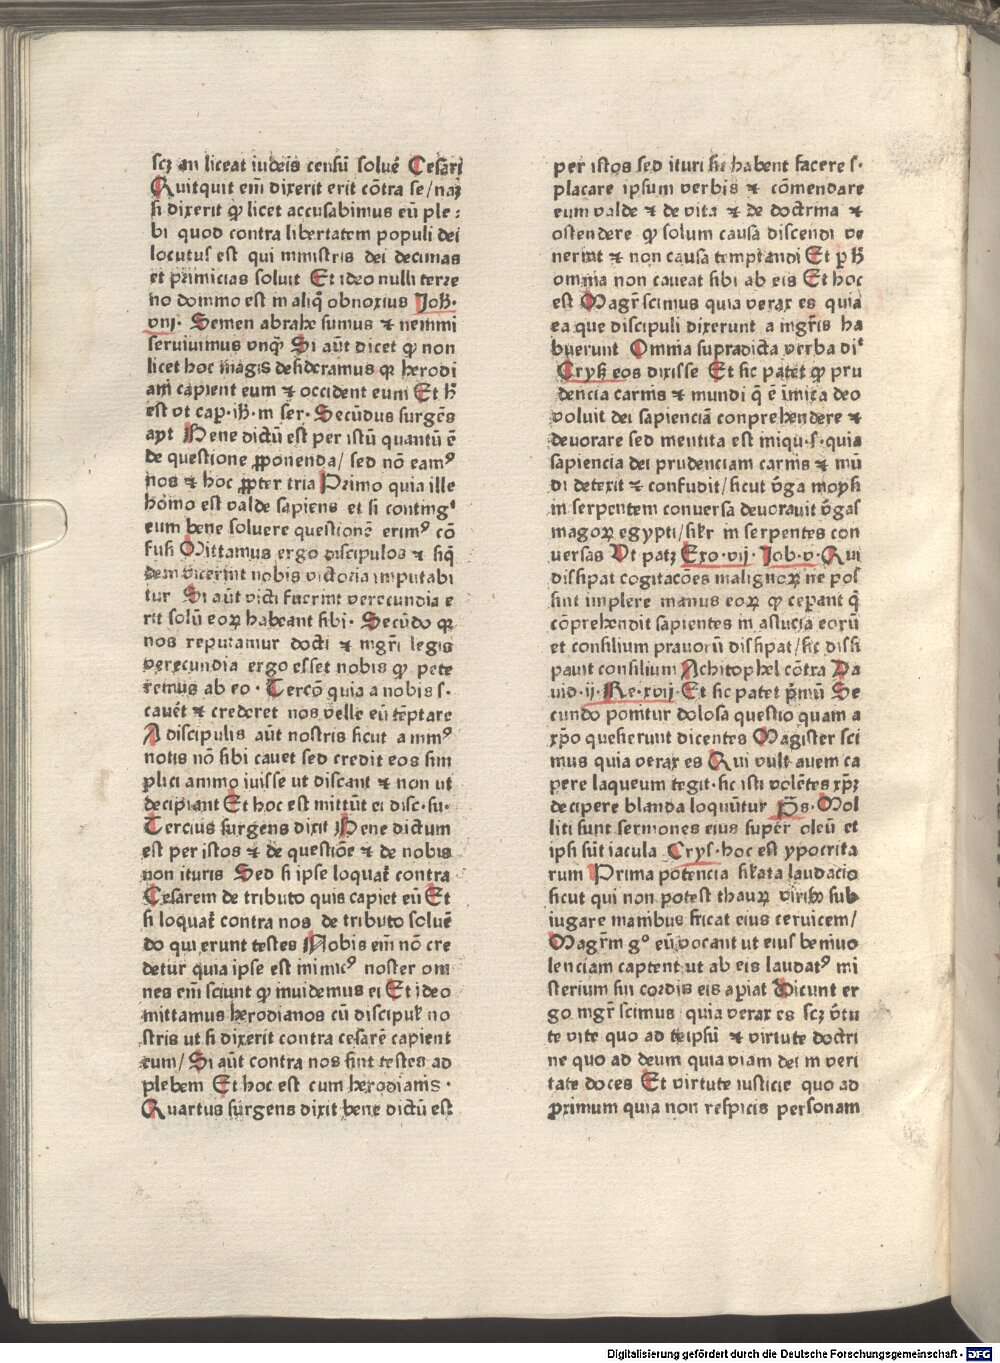 scꝫ an liceat iudeis censū soluē Cesari
Quitquit em̄ dixerit erit cōtra se/naꝫ
si dixerit ꝙ licet accusabimus eū ple⸗
bi quod contra libertatem populi dei
locutus est qui ministris dei decimas
et primicias soluit Et ideo nulli terre
no domino est in aliq̄ obnoxius Joh̄·
viij· Semen abrahe sumus ⁊ nemini
seruiuimus vnqͣ Si aūt dicet ꝙ non
licet hoc magis desideramus ꝙ herodi
ani capient eum ⁊ occident eum Et h̄
est vt cap·ih̄·in ser· Secūdus surgēs
ayt Bene dictū est per istū quantū ē
de questione ꝓponenda/ sed nō eamꝰ
nos ⁊ hoc ꝓpter tria Primo quia ille
homo est valde sapiens et si contingᵗ
eum bene soluere questionē erimꝰ cō
fusi Mittamus ergo discipulos ⁊ siq̄
dem vicerint nobis victoria imputabi
tur Si aūt victi fuerint verecundia e
rit solū eoꝝ habeant sibi· Secūdo qꝛ
nos reputamur docti ⁊ mgr̄i legis
verecundia ergo esset nobis ꝙ pete
remus ab eo · Tercō quia a nobis s·
cauēt ⁊ crederet nos velle eū tēptare
A discipulis aūt nostris sicut a inīnꝰ
notis nō sibi cauet sed credit eos sim
plici animo iuisse ut discant ⁊ non ut
decipiant Et hoc est mittūt ei disc·su·
Tercius surgens dixit Bene dictum
est per istos ⁊ de questiōe ⁊ de nobis
non ituris Sed si ipse loquat̄ contra
Cesarem de tributo quis capiet eū Et
si loquat̄ contra nos de tributo soluē
do qui erunt testes Nobis em̄ nō cre
detur quia ipse est inimicꝰ noster om
nes em̄ sciunt ꝙ inuidemus ei Et ideo
mittamus herodianos cū discipul̄ no
stris ut si dixerit contra cesarē capient
eum/ Si aūt contra nos sint testes ad
plebem Et hoc est cum herodianis ·
Quartus surgens dixit bene dictū est
per istos sed ituri sic habent facere s·
placare ipsum verbis ⁊ cōmendare
eum valde ⁊ de vita ⁊ de doctrina ⁊
ostendere ꝙ solum causa discendi ve
nerint ⁊ non causa temptandi Et ꝑ h̄
omnia non caueat sibi ab eis Et hoc
est Magr̄ scimus quia verax es quia
ea que discipuli dixerunt a mgr̄is ha
buerunt Omnia supradicta verba diᵗ
Crys̄ eos dixisse Et sic patet ꝙ pru
dencia carnis ⁊ mundi q̄ ē inīica deo
voluit dei sapienciā conprehendere ⁊
deuorare sed mentita est iniqu·s·quia
sapiencia dei prudenciam carnis ⁊ mū
di detexit ⁊ confudit/sicut v̄ga moysi
in serpentem conuersa deuorauit v̄gas
magoꝝ egypti/sil̄r in serpentes con
uersas Vt patꝫ Exo·vij· Job·v·Qui
dissipat cogitacōes malignoꝝ ne pos
sint implere manus eoꝝ ꝙ ceperant q̄
cōprehendit sapientes in astucia eorū
et consilium prauorū dissipat/sic dissi
pauit consilium Achitophel cōtra Da
uid·ij·Re·xvij·Et sic patet p̄mū Se
cundo ponitur dolosa questio quam a
xp̄o quesierunt dicentes Magister sci
mus quia verax es Qui vult auem ca
pere laqueum tegit·sic isti volētes xp̄ꝫ
decipere blanda loquūtur P̄s·Mol
liti sunt sermones eius super oleū et
ipsi sūt iacula Crys·hoc est ypocrita
rum Prima potencia sil̄ata laudacio
sicut qui non potest thauꝝ viribꝫ sub
iugare manibus fricat eius ceruicem/
Magr̄m gͦ eū vocant ut eius beniuo
lenciam captent ut ab eis laudatꝰ mi
sterium sui cordis eis apiat Dicunt er
go mgr̄ scimus quia verax es scꝫ v̄tu
te vite quo ad teipsū ⁊ virtute doctri
ne quo ad deum quia viam dei in veri
tate doces Et virtute iusticie quo ad
proximum quia non respicis personam
Digitalisierung gefördert durch die Deutsche Forschungsgemeinschaft - DFG